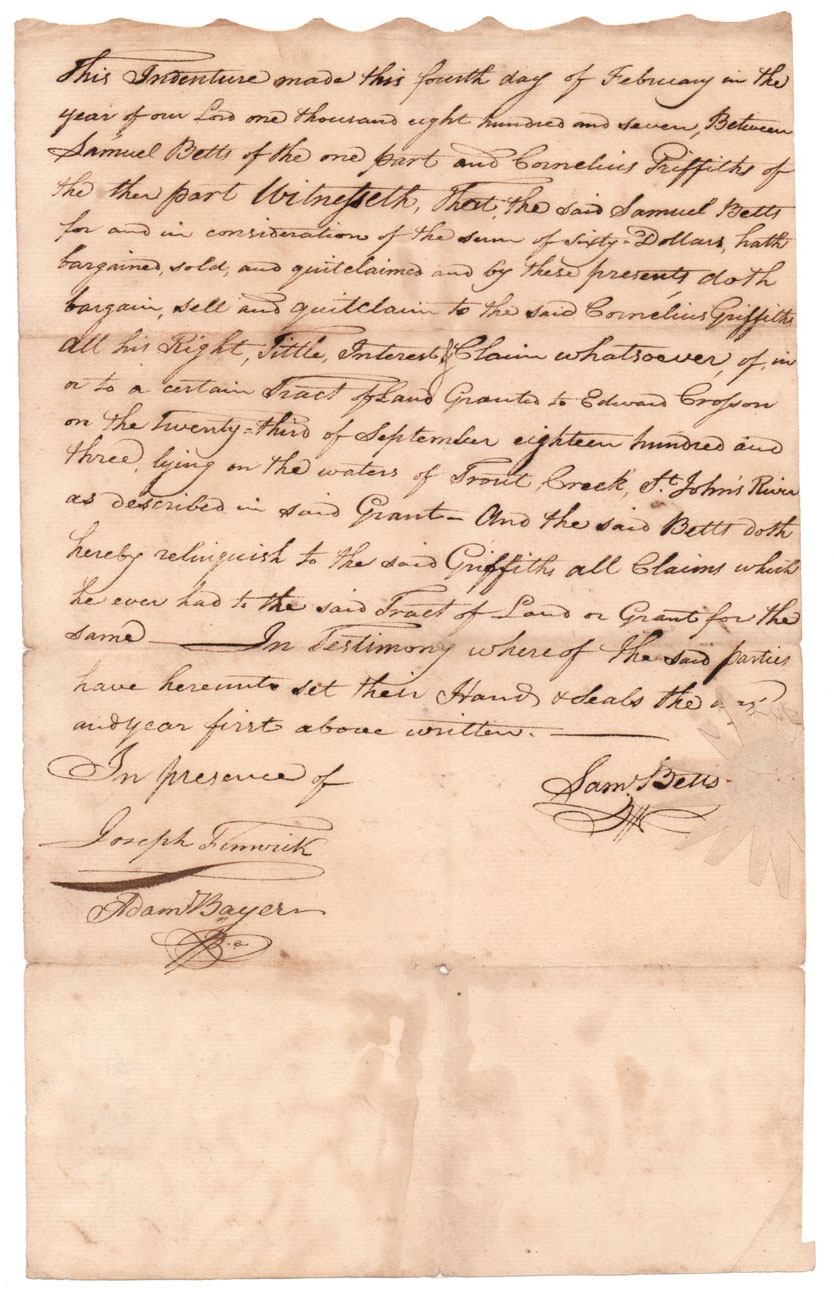 This Indenture made this fourth day of February in the
year of our Lord one thousand eight hundred and seven, Between
Samuel Betts of the one part and Cornelius Griffiths of
the ther part Witnesseth, That, the said Samuel Betts
for and in consideration of the sum of sixty-Dollars, hath
bargained, sold, and quitclaimed and by these presents doth
bargain, sell and quitclaim to the said Cornelius Griffiths
all his Right, Tittle, Interest & Claim whatsoever, of, in
or to a certain Tract of Land Granted to Edward Crosson
on the Twenty=third of September eighteen hundred and
three, lying on the waters of Trout Creek, St. John's River
as described in said Grant — And the said Betts doth
hereby relinquish to the said Griffiths all Claims which
he ever had to the said Tract of Land or Grant for the
same — In Testimony whereof the said parties
have hereunto set their Hands & Seals the
and year first above written. —
In presence of
Sam. Betts
Joseph Fenwick
Adam Bayer